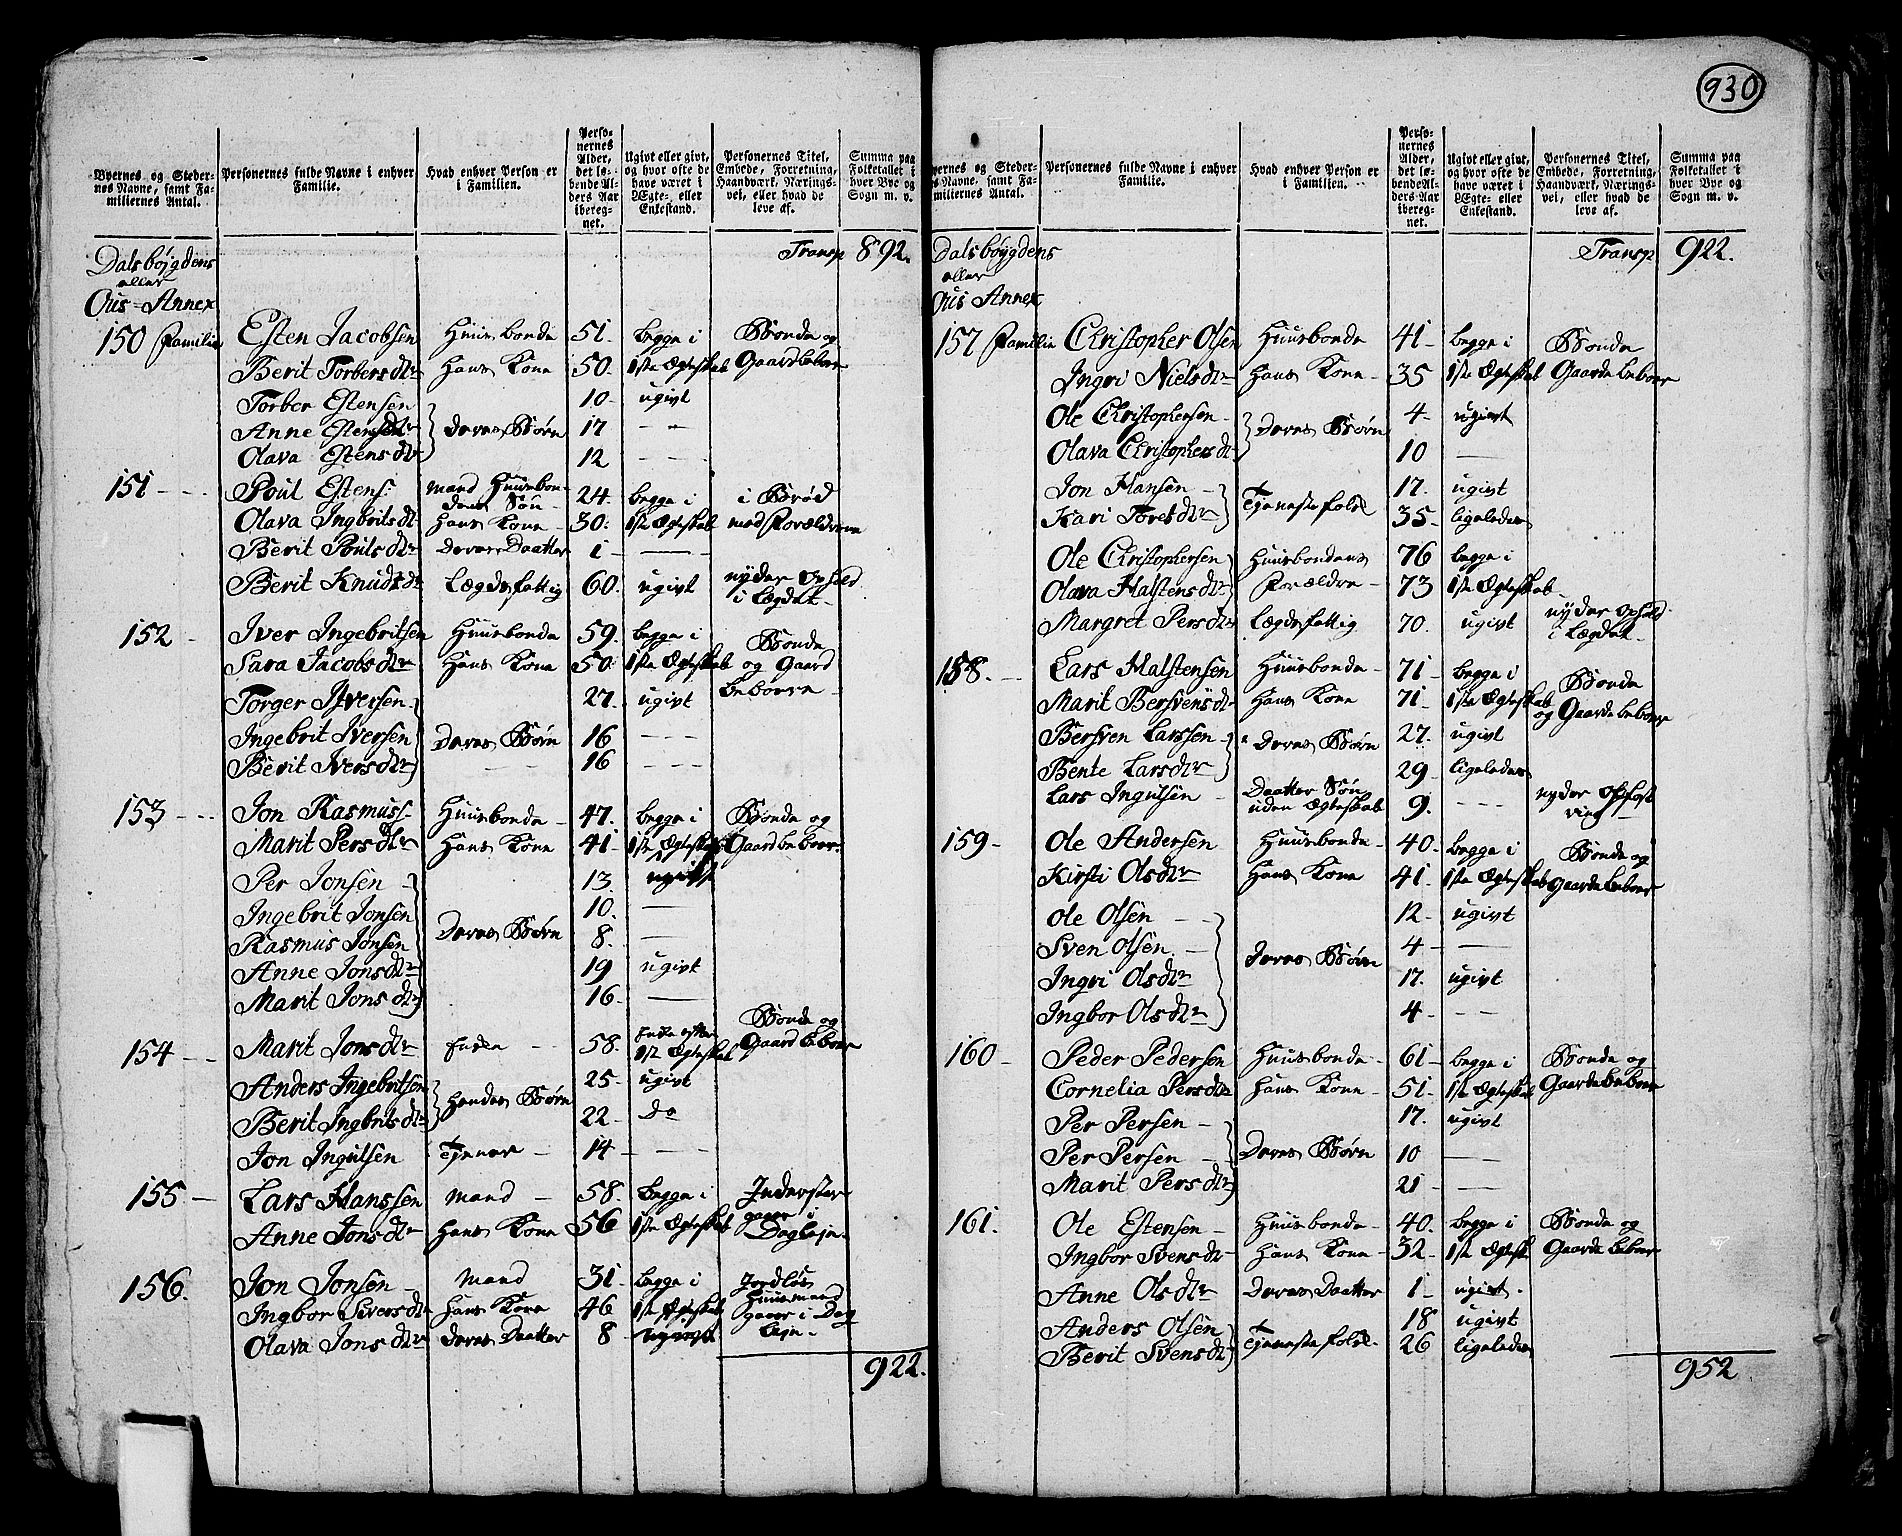 930
Byernes og Stedernes Navne, samt Familiernes Antal.
Personernes fulde Navne i enhver Familie.
Hvad enhver Person er i Familien.
Personernes Alder, det løbende Alders Aar iberegnet.
Ugivt eller givt, og hvor ofte de have været i Ægte- eller Enkestand.
Personernes Titel, Embede, Forretning, Haandværk, Næringsvei, eller hvad de leve af.
Summa paa Folketallet i hver Bye og Sogn m. v.
Dalsbøygdens eller Ous-Annex Transp 892.
150 Familie Esten Jacobsen Huusbonde 51. begge i Bonde og
Berit Torbersdtr hans Kone 50. 1ste Ægteskab Gaardbeboer
Torber Estensen 10 - ugivt
Anne Estensdtr } deres Børn 17 - -
Olava Estensdtr 12 - -
151 - - - Poul Estens: Mand Huusbondens Søn 24. begge i i Brød
Olava Ingbritsdtr hans Kone - 30: 1ste Ægteskab med Forældrene
Berit Poulsdtr deres Daatter 1 -
Berit Knudsdtr Lægdsfattig 60. ugivt nyder Ophold i Lægdet -
152 - Iver Ingebritsen Huusbonde 59. begge i Bonde
Sara Jacobsdtr hans Kone 50. 1ste Ægteskab og Gaard
Torger Iversen - 27. ugivt beboere -
Ingebrit Iversen } deres Børn 16 - - -
Berit Iversdtr 16 - - -
153 - - - Jon Rasmuss: Huusbonde - 47. begge i Bonde og
Marit Persdtr hans Kone 41 - 1ste Ægteskab Gaardbeboer.
Per Jonsen - 13. ugivt
Ingebrit Jonsen 10. -
Rasmus Jonsen } deres Børn 8. -
Anne Jonsdtr 19 ugivt
Marit Jonsdtr 16 - -
154 - - Marit Jonsdtr Enke - 58. Enke efter 1ste Ægteskab Bonde og Gaardbeboer
Anders Ingebritsen } hendes Børn 25 - ugivt
Berit Ingbritsdtr 22 - Do
Jon Ingulsen Tjener - 14 - - - -
155 - Lars Hanssen Mand - 58. begge i Inderster
Anne Jonsdtr hans Kone 56 1ste Ægteskab gaaer i Dagleje.
156. Jon Jonsen - Mand 31 - begge i Jordløs
Ingbor Siversdtr hans Kone 46 1ste Ægteskab Huusmand gaaer i Dag
Olava Jonsdtr deres Daatter 8 - ugivt leje -
922.
Byernes og Stedernes Navne, samt Familiernes Antal.
Personernes fulde Navne i enhver Familie.
Hvad enhver Person er i Familien.
Personernes Alder, det løbende Alders Aar iberegnet.
Ugivt eller givt, og hvor ofte de have været i Ægte- eller Enkestand.
Personernes Titel, Embede, Forretning, Haandværk, Næringsvei, eller hvad de leve af.
Summa paa Folketallet i hver Bye og Sogn m. v.
Dalsbøygdens eller Ous Annex Transp 922.
157 Familie Christopher Olsen Huusbonde 41 - begge i Bonde
Ingri Nielsdtr hans Kone - 35 1ste Ægteskab Gaardebeboer
Ole Christophersen - } deres Børn 4 - ugivt
Olava Christophersdtr 10 -
Jon Hansen - } Tjenestefolk 17. ugivt
Kari Toresdtr 35 - ligeledes
Ole Christophersen } Huusbondens 76 begge i
Olava Halstensdtr Forældre - 73 1ste Ægteskab -
Margret Persdtr Lægdsfattig 70. ugivt nyder Ophold i Lægdet -
158. - Lars Halstensen Huusbonde - 71 - begge i Bonde
Marit Bersvensdtr hans Kone 71 - 1ste Ægteskab og Gaardebeboer
Bersven Larssen - } deres Børn 27. ugivt
Bente Larsdtr 29 - ligeledes
Lars Ingulsen - Daatter Søn uden Ægteskab 9. - - - nyder Opfostring
159 - Ole Andersen Huusbonde - 40 - begge i Bonde og
Kirsti Olsdtr hans Kone 41 - 1ste Ægteskab Gaardebeboer
Ole Olsen - - 12 - ugivt
Sven Olsen. - } deres Børn 4 - -
Ingri Olsdtr 17. ugivt
Ingbor Olsdtr 4 - - -
160 - Peder Pedersen Huusbonde - 61 - begge i Bonde og
Cornelia Persdtr hans Kone - 51. 1ste Ægteskab Gaardebeboer
Per Persen - 17. ugivt
Per Persen - } deres Børn 10 -
Marit Persdtr 21 - -
161. Ole Estensen - Huusbonde - 40. begge i Bonde og
Ingbor Svensdtr hans Kone - 32 - 1ste Ægtesk. Gaardebeboer
Anne Olsdtr deres Daatter 1 - ugivt.
Anders Olsen } Tjenestefolk - 18 ugivt
Berit Svensdtr 26 ligeledes
952